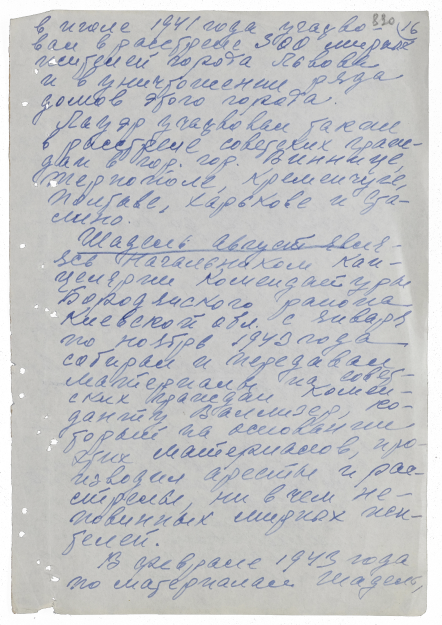 в июле 1941 года участво- 830 16
вал в расстреле 300 мирных
жителей города Львова
и в уничтожении ряда
домов этого города.
Лауэр участвовал также
в расстреле советских граж-
дан в гор. гор. Виннице,
Тернополе, Кременчуге,
Полтаве, Харькове и Ста-
лино.
Шадель Август явля-
ясь начальником кан-
целярии комендатуры
Бородянского района
Киевской обл. с января
по ноябрь 1943 года
собирал и передавал
материалы на совет-
ских граждан комен-
данту, ко-
торый на основании
этих материалов, про-
изводил аресты и рас-
стрелы, ни в чем не-
повинных мирных жи-
телей.
В феврале 1943 года
по материалам Шадель,